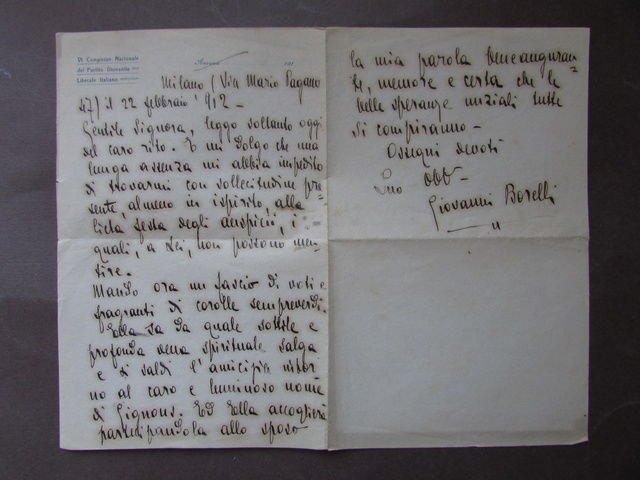 VI Congresso Nazionale
del Partito Giovanile
Liberale Italiano
191
Milano (Via Mario Pagano
47) il 22 febbraio '912 -
Gentile Signora, leggo soltanto oggi
del caro rito. E mi dolgo che una
lunga assenza mi abbia impedito
di trovarmi con sollecitudine pre-
sente, almeno in ispirito, alla
lieta festa degli auspicii, i
quali, a Lei, non possono men-
tire.
Mando ora un fascio di voti e
fragranti di corolle sempreverdi.
Ella sa da quale sottile e
profonda vena spirituale salga
e si saldi l'amicizia intor-
no al caro e luminoso nome
di Gignous. Ed Ella accoglierà
partecipandola allo sposo
la mia parola beneauguran-
te, memore e certa che le
belle speranze iniziali tutte
si compiranno -
Ossequi devoti
Suo Obb -
Giovanni Borelli